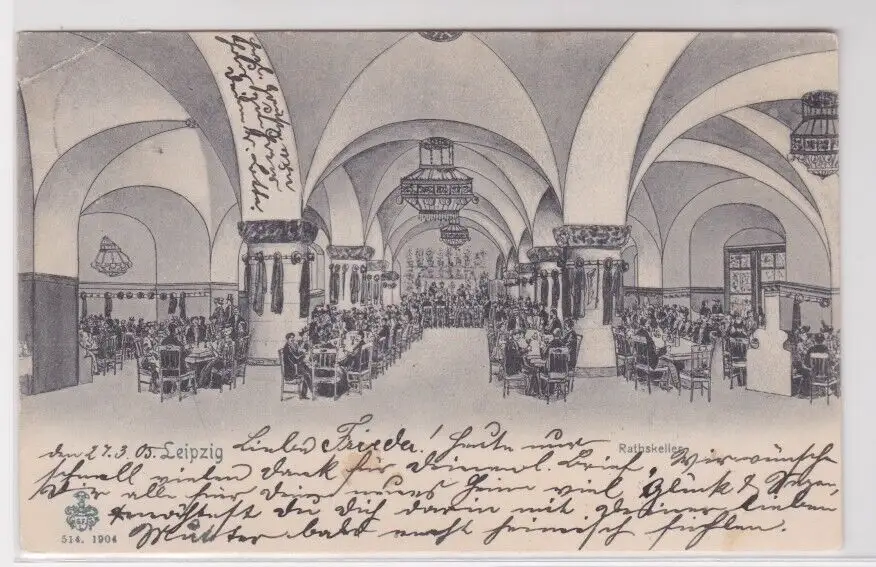 den 27.3.05. Leipzig Liebe Frieda! Heute nur
Rathskeller
schnell vielen Dank für Deinen l. Brief, Wir wünschen
Dir alle für Dein neues Heim viel Glück & Segen,
möchtest du Dich darin mit Deiner lieben
Mutter bald recht heimisch fühlen.
514. 1904